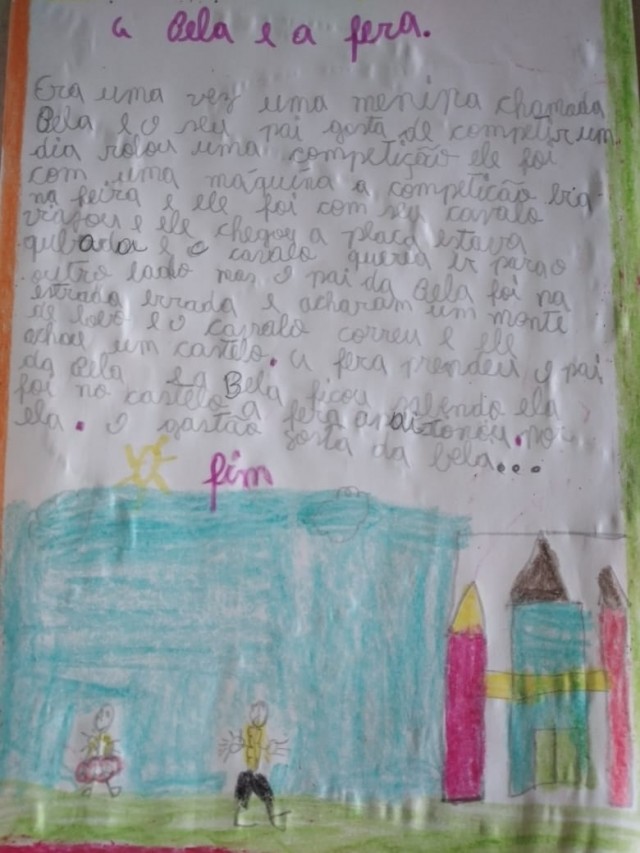 a Bela e a fera.
Era uma vez uma menina chamada
Bela e o seu pai gosta de competir um
dia rolou uma competição ele foi
com uma máquina a competição
na feira e ele foi com seu cavalo
e ele chegou a placa estava
quebrada e o cavalo queria ir para o
outro lado mas o pai da Bela foi na
estrada errada e acharam um monte
de lobo e o cavalo correu e ele
achou um castelo. a fera prendeu o pai
da Bela e a Bela ficou sabendo ela
foi no castelo a fera
ela. o gastão gosta da bela...
fim